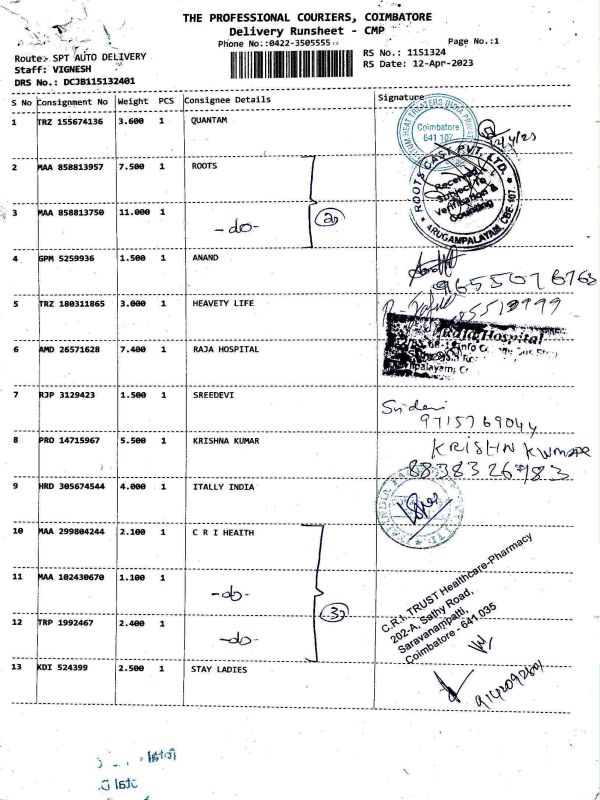 THE PROFESSIONAL COURIERS, COIMBATORE
Delivery Runsheet - CMP
Phone No.:0422-3505555
Page No.:1
Route:- SPT AUTO DELIVERY
RS No.: 1151324
Staff: VIGNESH
RS Date: 12-Apr-2023
DRS No.: DCJB115132401
S No Consignment No Weight PCS Consignee Details Signature
1 TRZ 155674136 3.600 1 QUANTAM
Coimbatore
641 107
12/4/23
2 MAA 858813957 7.500 1 ROOTS
ROOTS CAST PVT. LTD.
Received
Subject To
Verification &
Counting
ARUGAMPALAYAM, CBE-107.
3 MAA 858813750 11.000 1 -do- 2
4 GPM 5259936 1.500 1 ANAND
9655076768
5 TRZ 180311865 3.000 1 HEAVETY LIFE
6 AMD 26571628 7.400 1 RAJA HOSPITAL
Raja Hospital
7 RJP 3129423 1.500 1 SREEDEVI
Sridevi
9715769044
8 PRO 14715967 5.500 1 KRISHNA KUMAR
KRISHN KWMAR
9 HRD 305674544 4.000 1 ITALLY INDIA
10 MAA 299804244 2.100 1 C R I HEAITH
11 MAA 102430670 1.100 1 -do- 3
12 TRP 1992467 2.400 1 -do-
C.R.I. TRUST Healthcare-Pharmacy
202-A, Sathy Road,
Saravanampatti,
Coimbatore - 641 035
13 KDI 524399 2.500 1 STAY LADIES